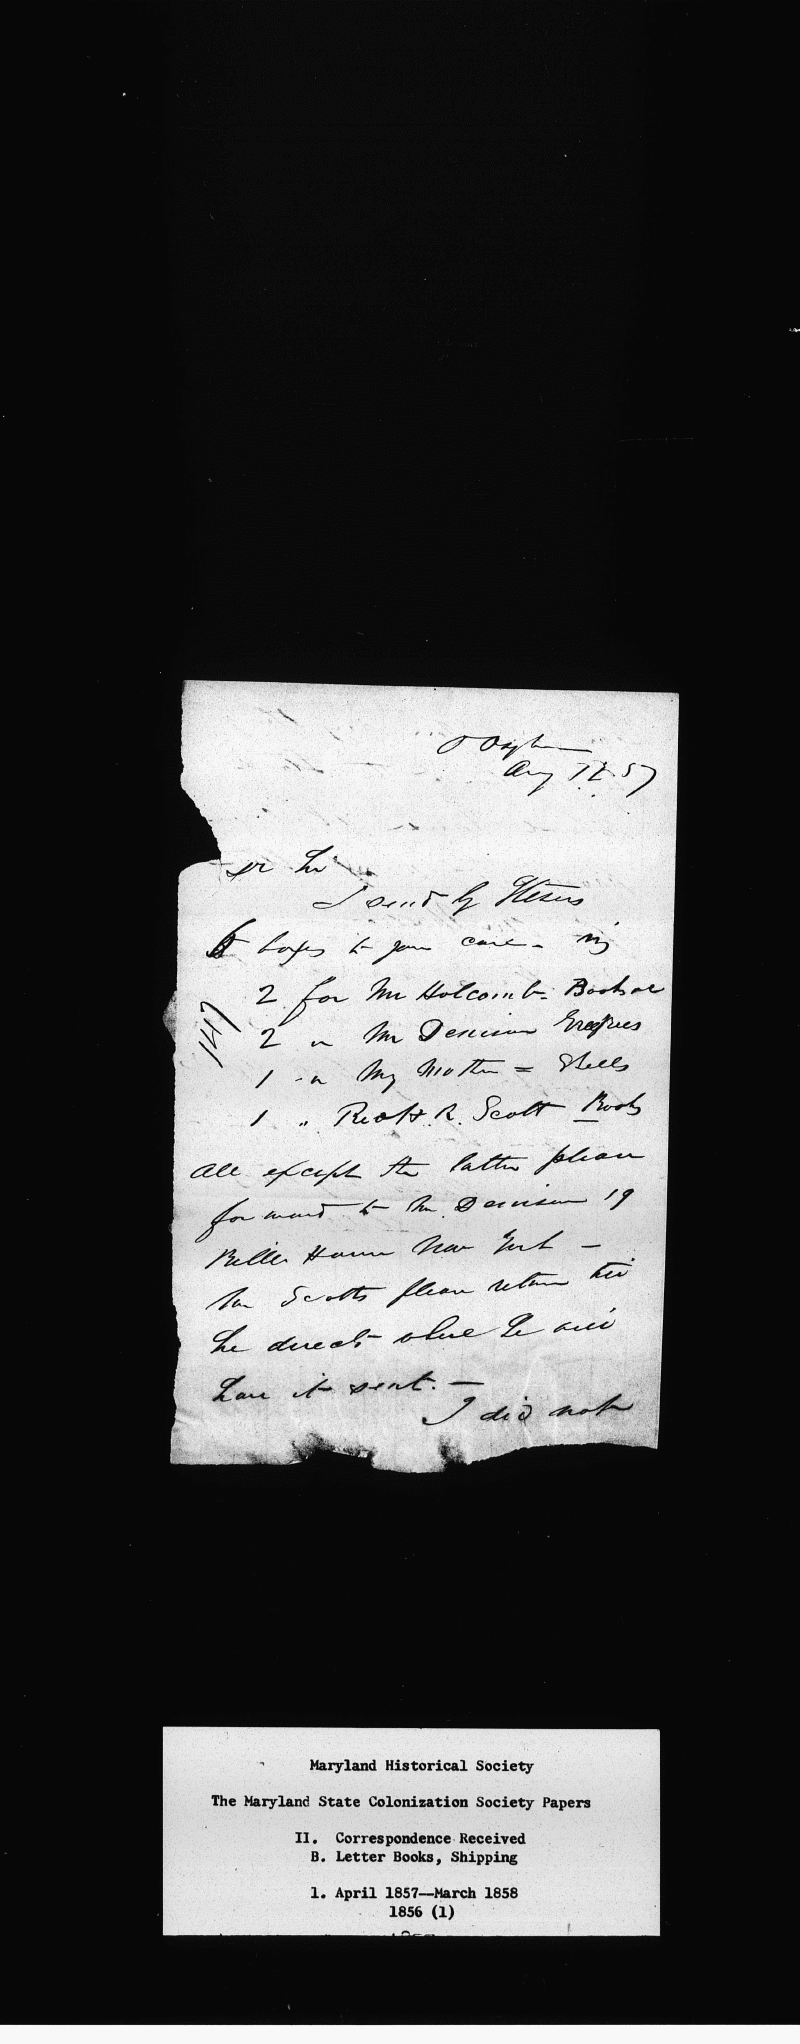 Aug 12. 57
Dr Sir
I send by Stevens
6 boxes to your care - viz
2 for Mr Holcomb - Books &c
2 " Mr Denison
1 " My Mother = Shells
1 " Revd H. R. Scott Books
147
All except the latter please
forward to Mr. Denison 19
Bible House New York -
Mr Scotts please retain till
he directs where he will
have it sent. -
I did not
Maryland Historical Society
The Maryland State Colonization Society Papers
II. Correspondence Received
B. Letter Books, Shipping
1. April 1857--March 1858
1856 (1)